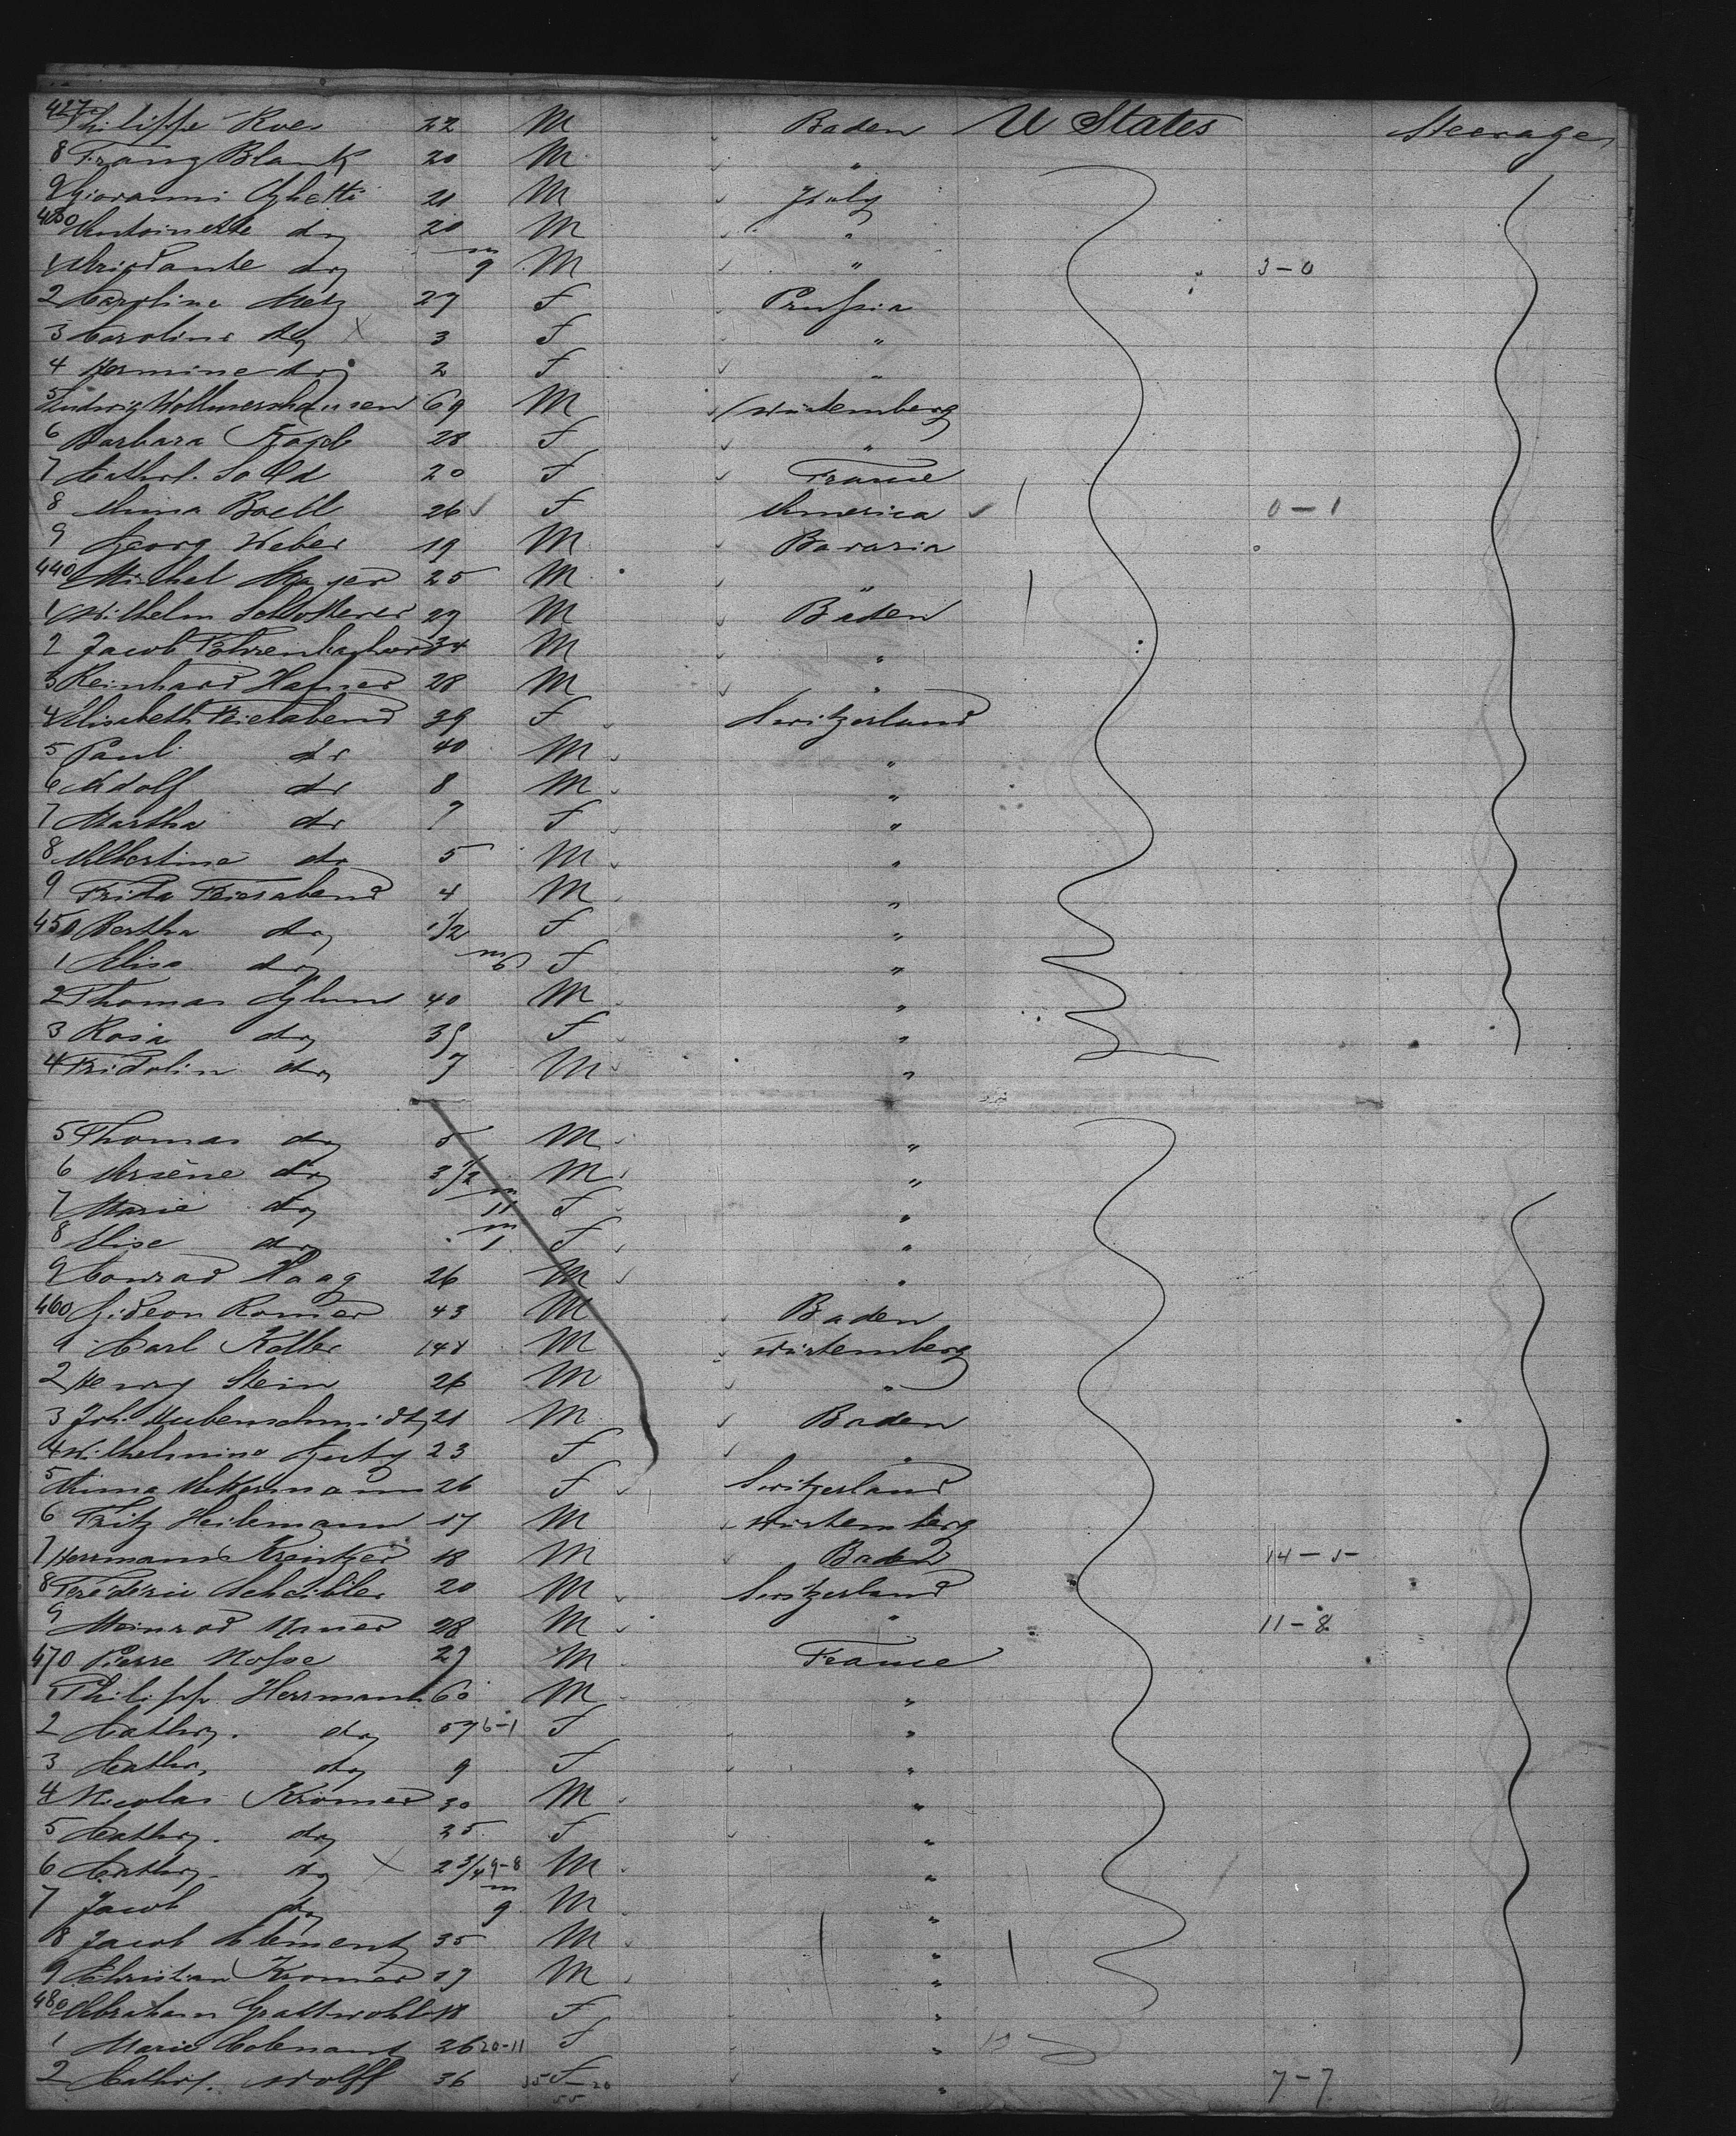 427 Philippe Roes 22 M Baden U States Steerage
8 Franz Blank 20 M "
9 Giovanni Oghetti 21 M Italy
430 Antoinette do 20 M "
1 do m 9 M " 3-0
2 Caroline Metz 27 F Prussia
3 Caroline do X 3 F "
4 Hermine do 2 F "
5 Ludwig Wollmershausen 69 M Würtemberg
6 Barbara 28 F "
7 Cathr. 20 F France
8 Anna Boell 26 F America 0-1
9 Georg Weber 19 M Bavaria
440 Michel Mayer 25 M "
1 Wilhelm Schlotterer 27 M Baden
2 Jacob Fehrenbacher 34 M "
3 Reinhard Hafner 28 M "
4 Elisabeth Feierabend 39 F Switzerland
5 Paul do 40 M "
6 Adolf do 8 M "
7 Martha do 7 F "
8 Albertine do 5 M "
9 Frida Feierabend 4 M "
450 Bertha do 1 1/2 F "
1 Elisa do m 6 F "
2 Thomas 40 M "
3 Rosa do 35 F "
4 Fridolin do 7 M "
5 Thomas do 5 M "
6 Arsène do 3 1/2 M "
7 Marie do m 11 F "
8 Elise do m 1 F "
9 Conrad Haag 26 M "
460 Gideon Romer 43 M Baden
1 Carl Koller M Würtemberg
2 Henry Stein 26 M "
3 Joh. Hubenschmidt 21 M Baden
4 Wilhelmine Guty 23 F "
5 Anna Akermann 26 F Switzerland
6 Fritz Heilemann 17 M Würtemberg
7 Herrmann Kreutzer 18 M Baden 14-5
8 Fréderic Scheibler 20 M Switzerland
9 Meinrad 28 M " 11-8
470 Pierre Mosse 27 M France
1 Philipp Herrmann 60 M "
2 Cathr. do 57 6-1 F "
3 Cathr. do 9 F "
4 Nicolas Kromer 30 M "
5 Cathr. do 25 F "
6 Cathr. do X 2 3/4 9-8 M "
7 Jacob do m 9 M "
8 Jacob Clementz 35 M "
9 Christian Kromer 17 M "
480 Abraham Grattwohl 18 F "
1 Marie 26 20-11 F "
2 Cathr. Wolff 36 F " 7-7